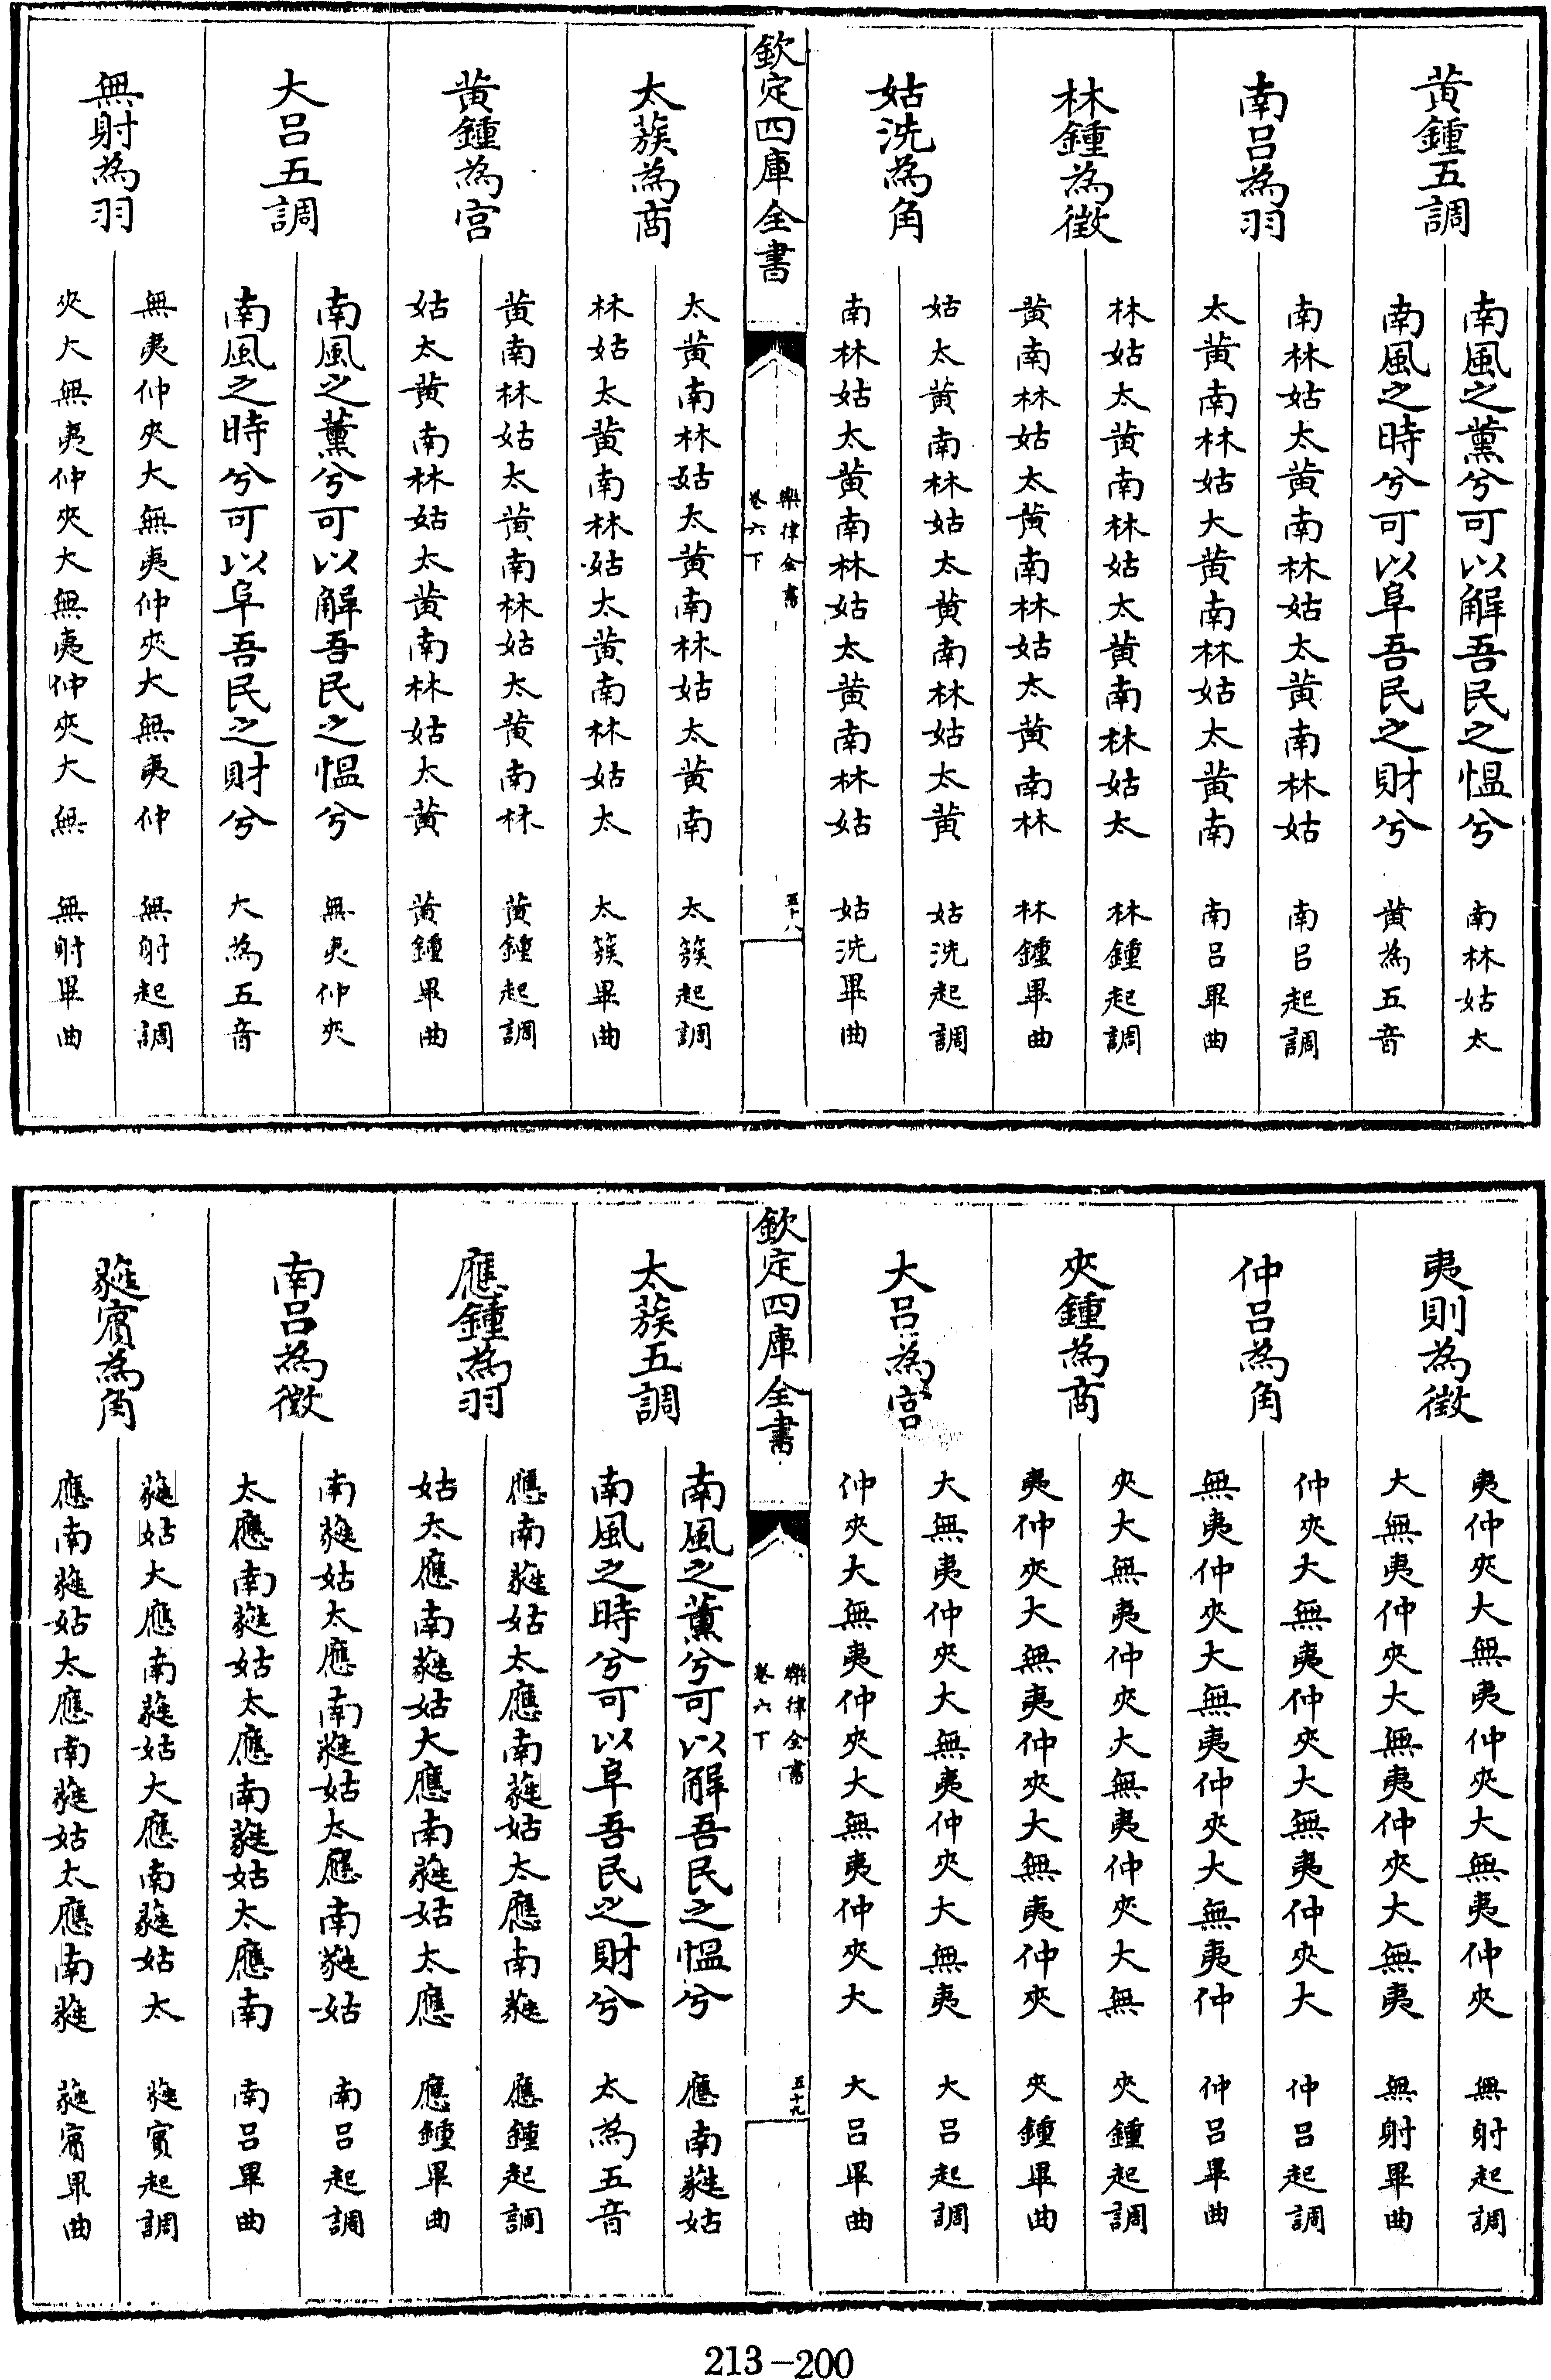 黄鍾五調
南風之薰兮可以解吾民之愠兮 南林姑太
南風之時兮可以阜吾民之財兮 黄為五音
南吕為羽
南林姑太黄南林姑太黄南林姑 南吕起調
太黄南林姑大黄南林姑太黄南 南吕畢曲
林鍾為徵
林姑太黄南林姑太黄南林姑太 林鍾起調
黄南林姑太黄南林姑太黄南林 林鍾畢曲
姑洗為角
姑太黄南林姑太黄南林姑太黄 姑洗起調
南林姑太黄南林姑太黄南林姑 姑洗畢曲
欽定四庫全書
樂律全書
卷六下
五十八
太蔟為商
太黄南林姑太黄南林姑太黄南 太簇起調
林姑太黄南林姑太黄南林姑太 太簇畢曲
黄鍾為宫
黄南林姑太黄南林姑太黄南林 黄鍾起調
姑太黄南林姑太黄南林姑太黄 黄鍾畢曲
大吕五調
南風之薰兮可以解吾民之愠兮 無夷仲夾
南風之時兮可以阜吾民之財兮 大為五音
無射為羽
無夷仲夾大無夷仲夾大無夷仲 無射起調
夾大無夷仲夾大無夷仲夾大無 無射畢曲
夷則為徵
夷仲夾大無夷仲夾大無夷仲夾 無射起調
大無夷仲夾大無夷仲夾大無夷 無射畢曲
仲吕為角
仲夾大無夷仲夾大無夷仲夾大 仲吕起調
無夷仲夾大無夷仲夾大無夷仲 仲吕畢曲
夾鍾為商
夾大無夷仲夾大無夷仲夾大無 夾鍾起調
夷仲夾大無夷仲夾大無夷仲夾 夾鍾畢曲
大吕為宫
大無夷仲夾大無夷仲夾大無夷 大吕起調
仲夾大無夷仲夾大無夷仲夾大 大吕畢曲
欽定四庫全書
樂律全書
卷六下
五十九
太蔟五調
南風之薰兮可以解吾民之愠兮 應南蕤姑
南風之時兮可以阜吾民之財兮 太為五音
應鍾為羽
應南蕤姑太應南蕤姑太應南蕤 應鍾起調
姑太應南蕤姑大應南蕤姑太應 應鍾畢曲
南吕為徵
南蕤姑太應南蕤姑太應南蕤姑 南吕起調
太應南蕤姑太應南蕤姑太應南 南吕畢曲
蕤賓為角
蕤姑大應南蕤姑大應南蕤姑太 蕤賓起調
應南蕤姑太應南蕤姑太應南蕤 蕤賓畢曲
213-200